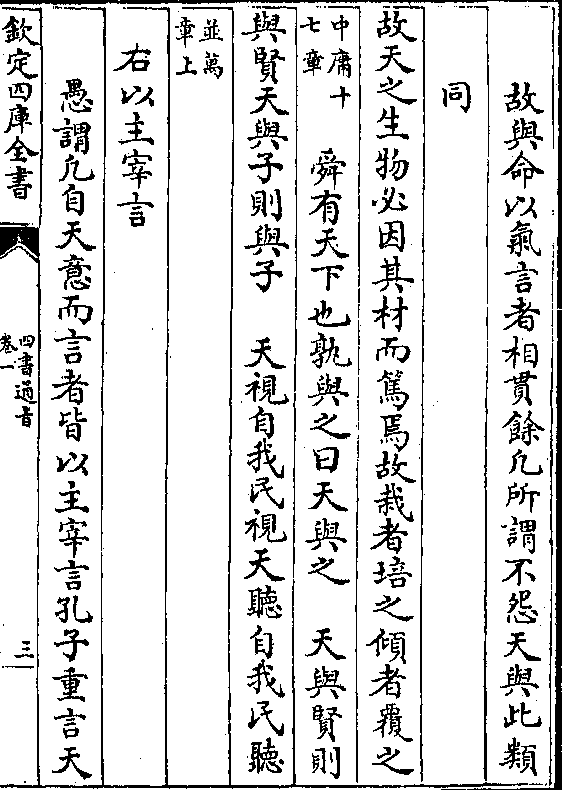 故與命以氣言者相貫餘凡所謂不怨天與此類
同
故天之生物必因其材而篤焉故栽者培之傾者覆之
中庸十
七章
舜有天下也孰與之曰天與之 天與賢則
與賢天與子則與子 天視自我民視天聽自我民聽
並萬
章上
右以主宰言
愚謂凡自天意而言者皆以主宰言孔子重言天
欽定四庫全書
四書通旨
卷一
三